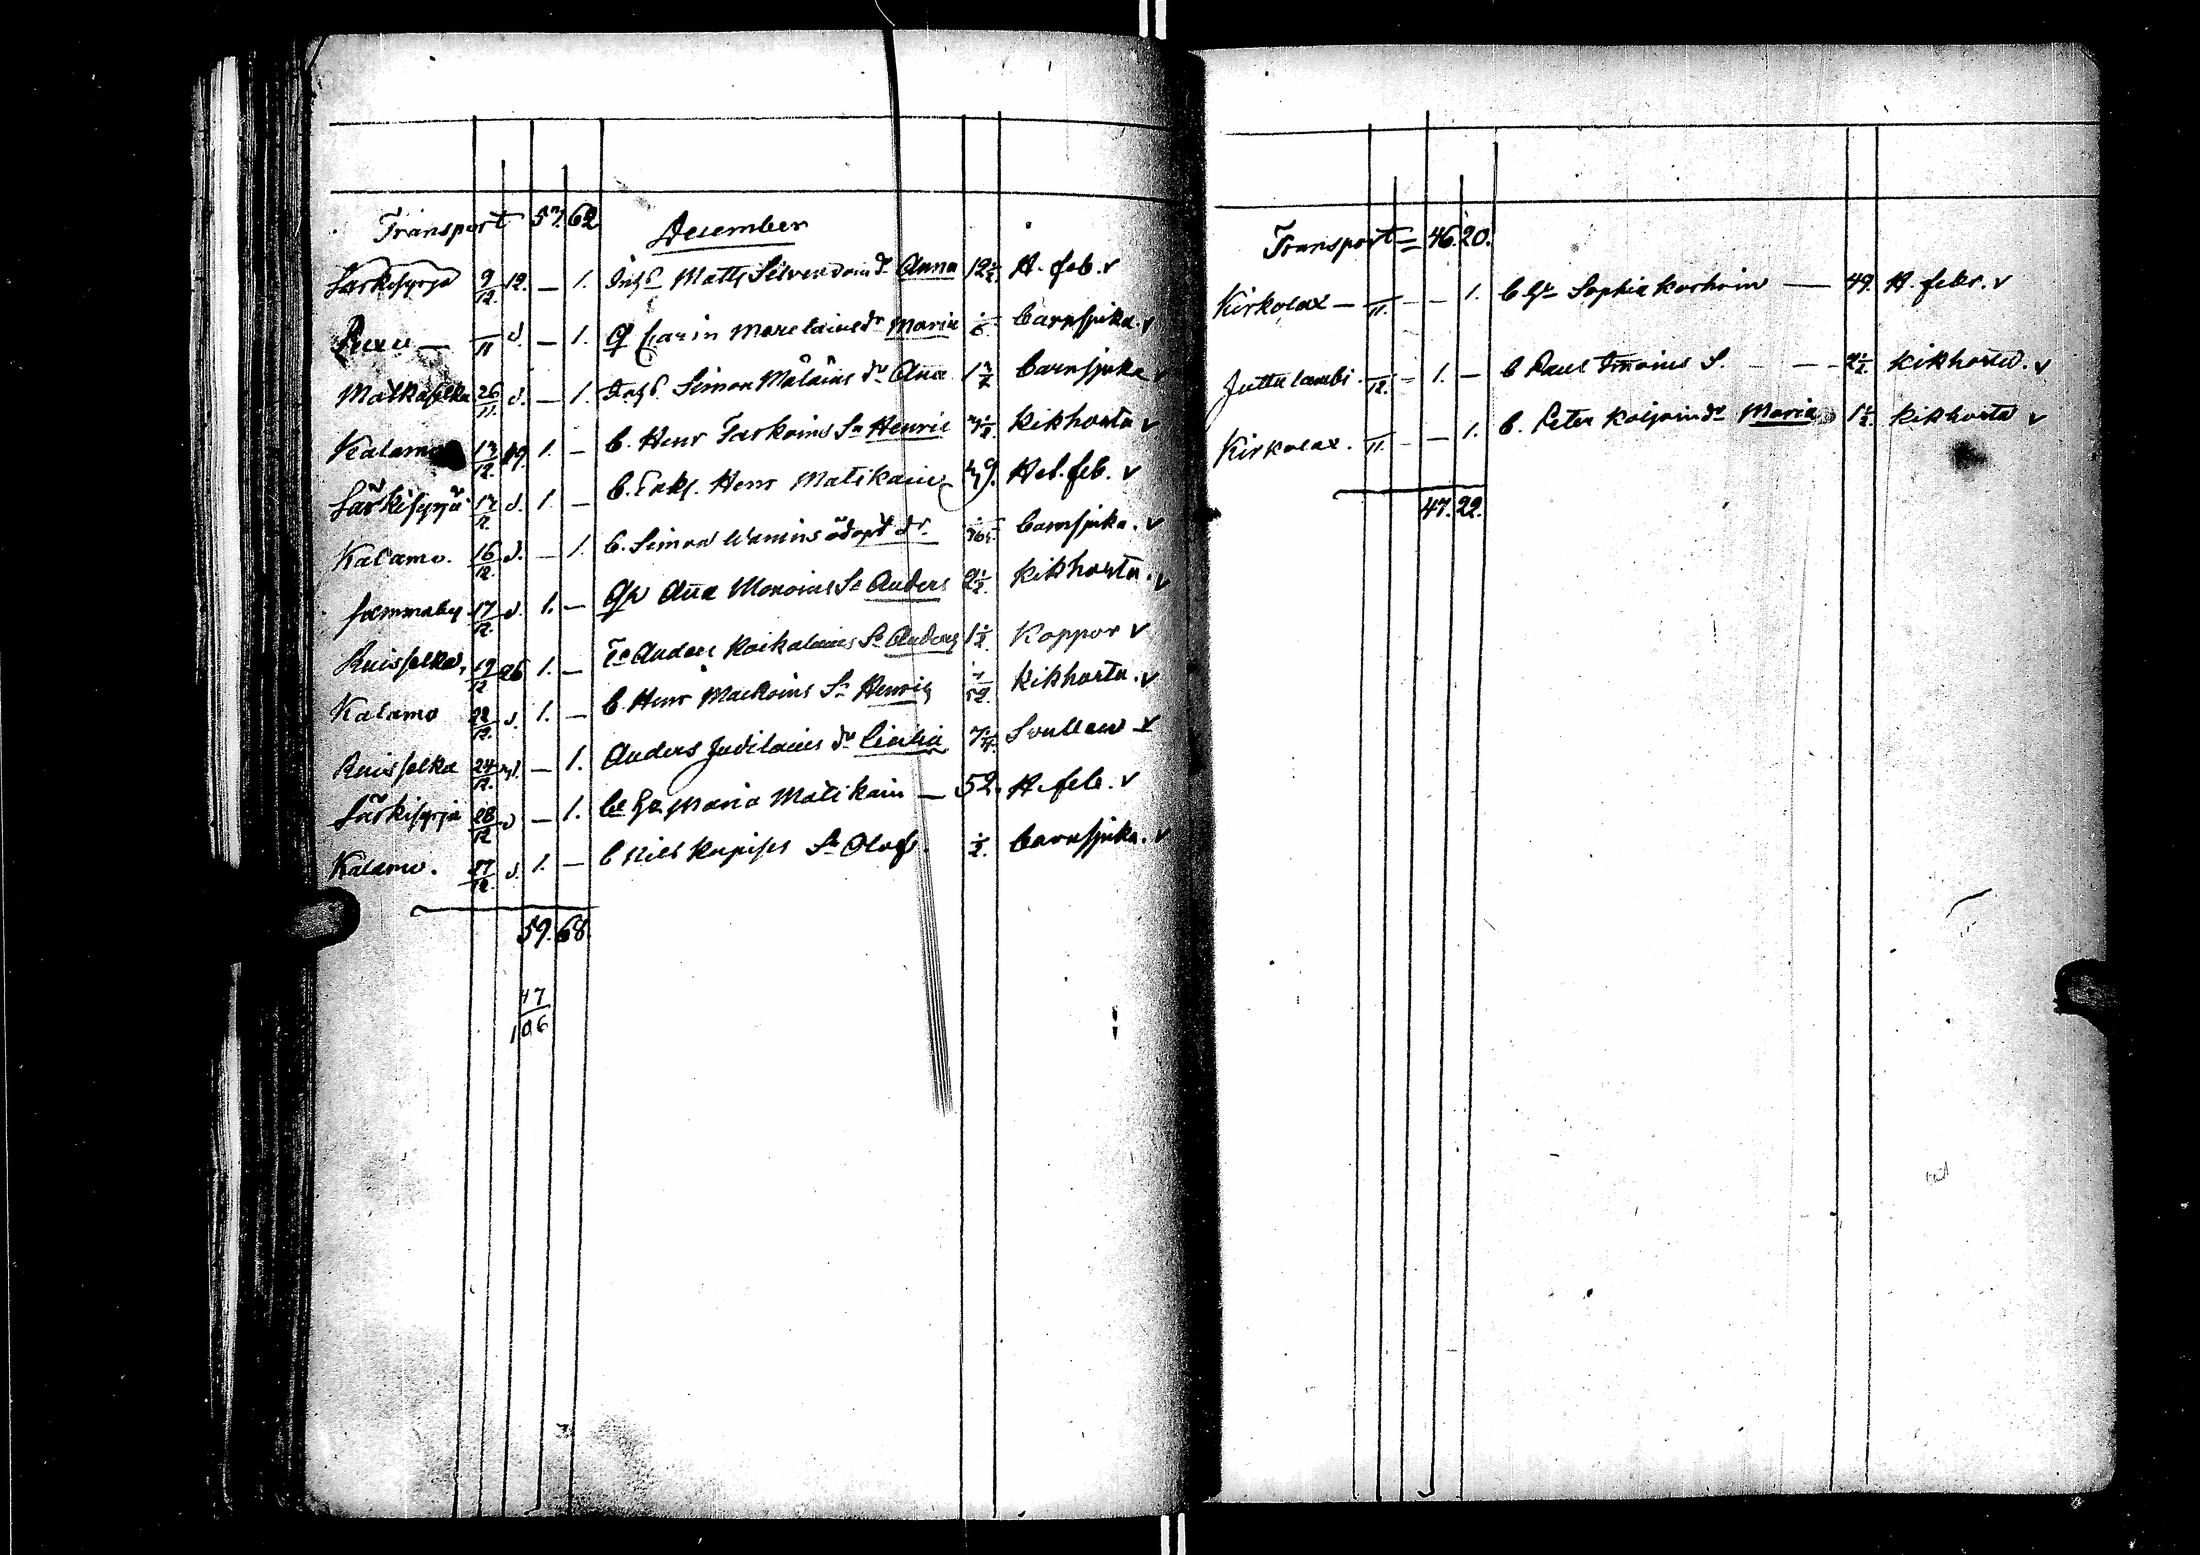 Transport 57. 62
December
Särkisyrjä 9/12. 12. — 1. Inhs Matts Silvendoin dr Anna 12 1/2. H. feb. v
Ruxu — —/11 d. — 1. Carin dr Maria barnsjuka. v
Matkaselka 26/11. d. — 1. Inhs. Simon dr Aña barnsjuka v
Kalamo 13/12. 19. 1. — b. Henr Tarkoins Sn Henric kikhosta v
Särkisyrjä 17/12. d. 1. — b. Enkl. Henr Matikain 49. Het. feb. v
Kalamo. 16/12. d. — 1. b. Simon dr. barnsjuka. v
Jammaby 17/12. d. 1. — Aña Monoins Sn Anders 2 1/2. kikhosta. v
Ruisselka, 19/12 26 1. — Anders Sn Anders 1 1/2. Koppor v
Kalamo 22/12. d. 1. — b. Henr Sn Henric kikhosta. v
Ruisselka 24/12. d. — 1. Anders Judilains dr Cicilia Svullen v
Särkisyrja 28/12 d — 1. Maria Matikain — 52. H. feb. v
Kalamo. 27/12. d. 1. — b Nils Sn Olof. 1/2. barnsjuka. v
59. 68.
47
106
Transport = 46. 20.
Kirkolax — —/11. — — 1. b Sophia Korhoin — 49. H. febr. v
Juttulambi. —/12. — 1. — b Paul S. — — — 2 1/2. kikhosta. v
Kirkolax. —/11. — — 1. b. Peter Koljoin dr Maria 1 1/2. kikhosta v
47. 22.